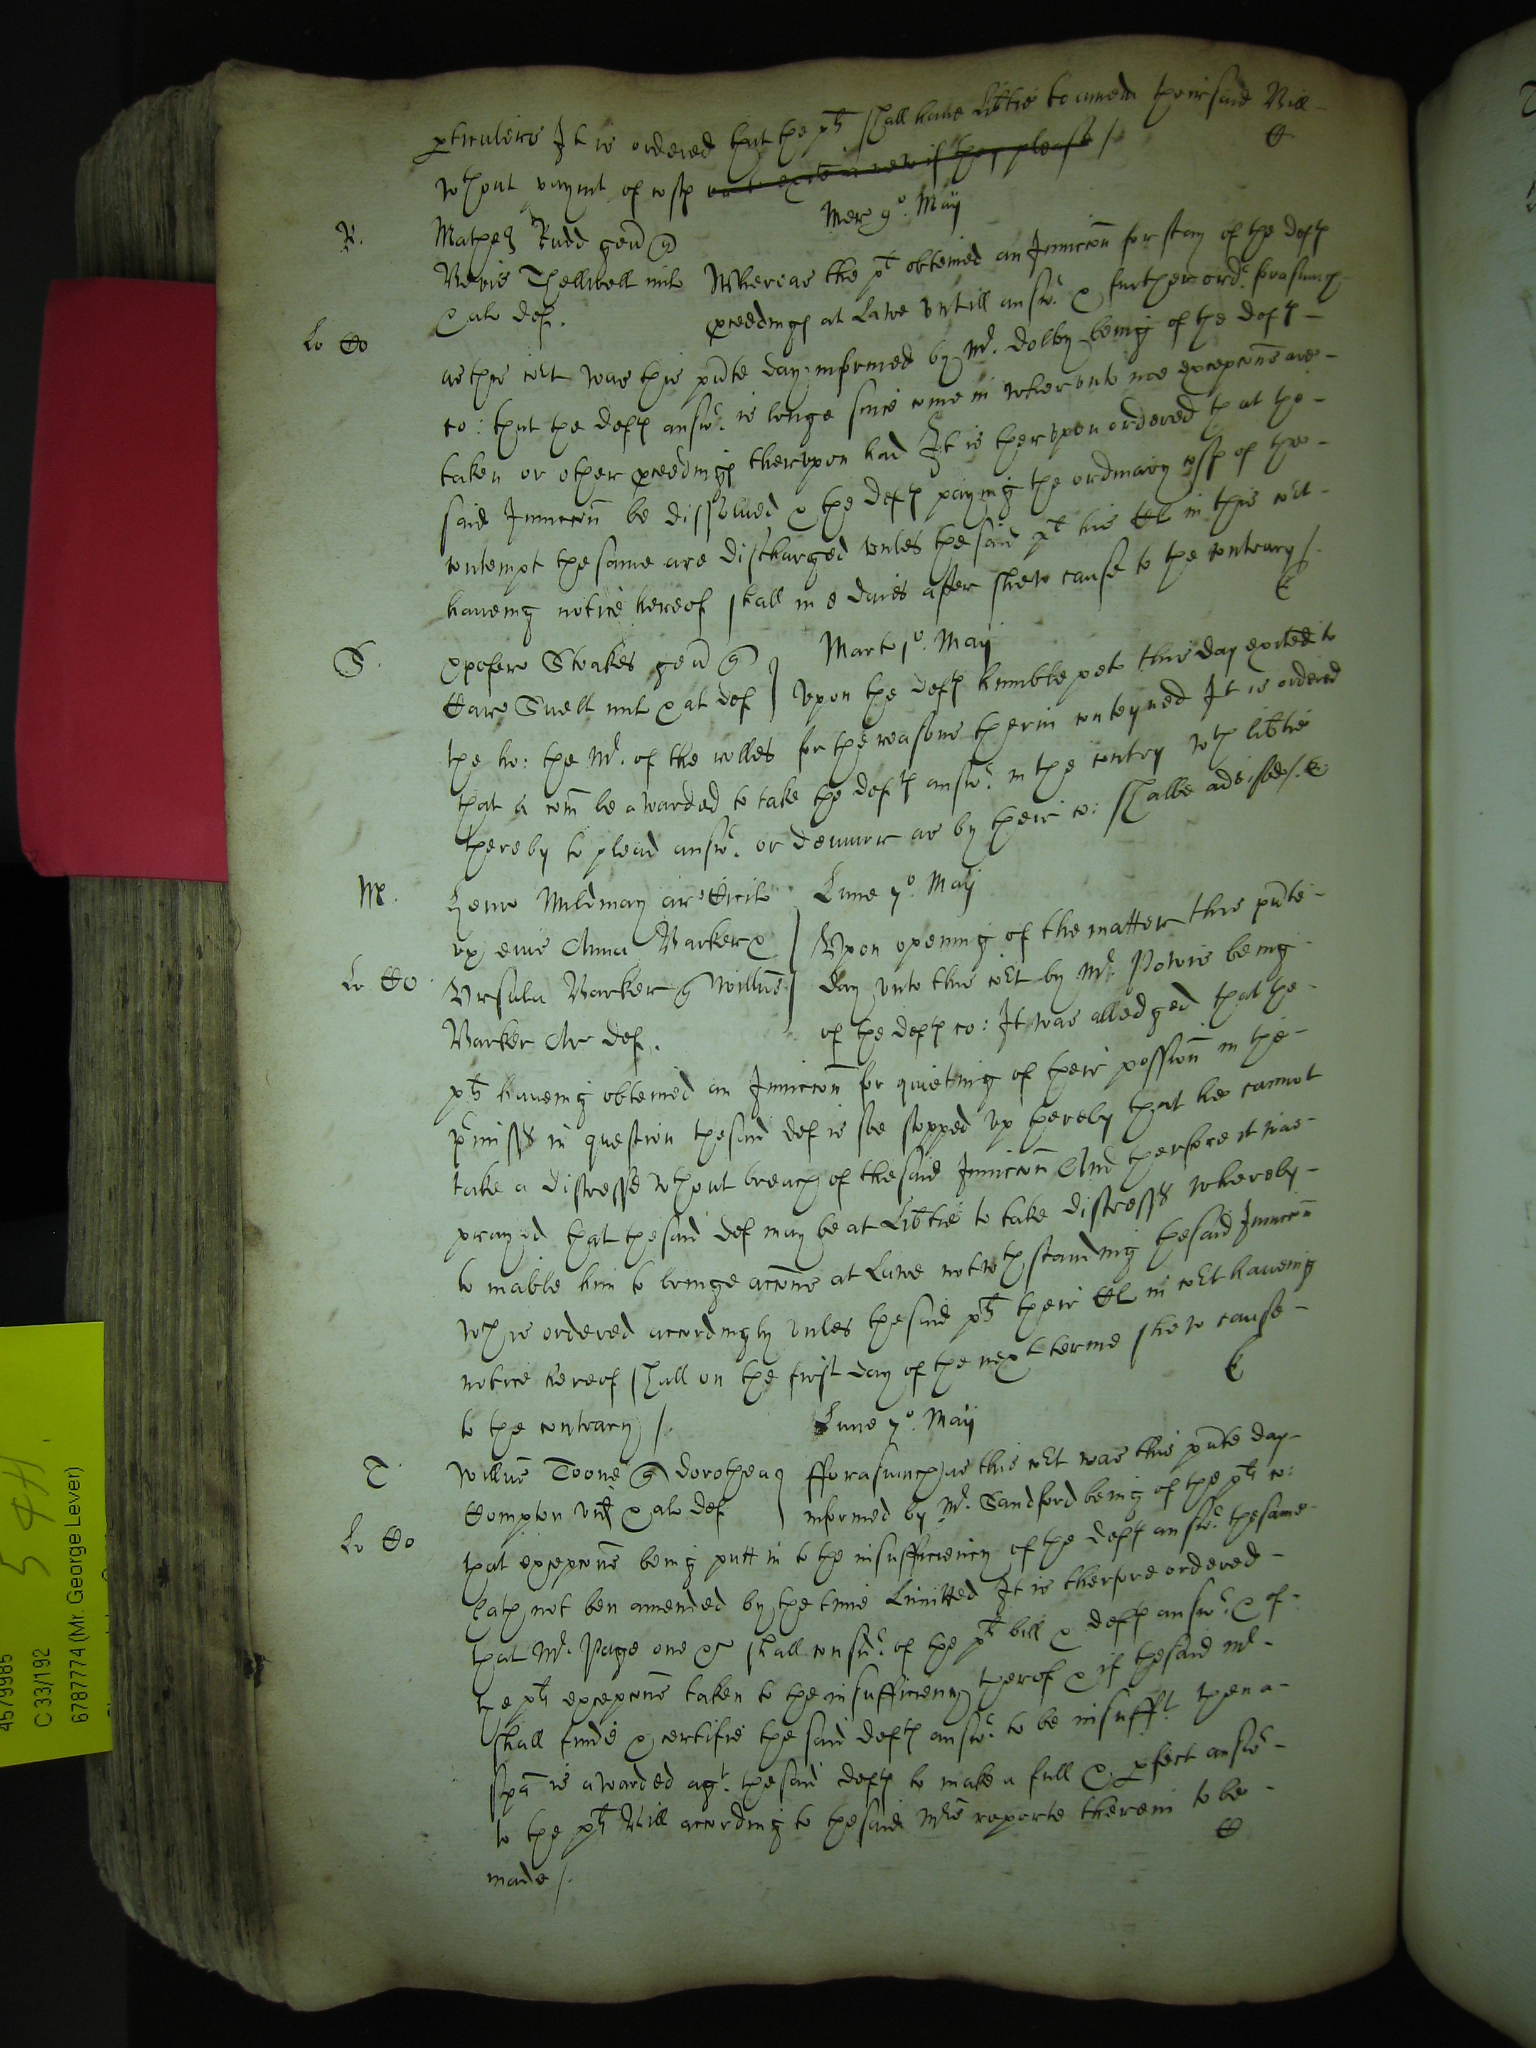 pticulers It is ordered that the pts shall have Libtie to amend their said Bill
wthout paymt of costs or to exhibite a new if they please /.
R.
Mer 9o. Maij
Mathes Rudd gen
Thellwell mil Whereas the pt obteined an Iniuccon for stay of the defts
& al def. pceedings at Lawe vntill answr. & further ordr. forasmuch
as this cort was this pnte day informed by Mr. Dolby being of the defts
co: that the defts answr. is longe since come in wherunto noe excepcons are
taken or other pceedings thervpon had It is thervpon ordered that the
said Iniuccon be dissolued & the defts paying the ordinary costs of the
contempt the same are discharged vnles the said pt his Cl in this cort
haueing notice hereof shall in 8 daies after shew cause to the contrary /.
S.
Marto 1o. Maij
Xpofero Stoakes gen
Snell mil & al def Vpon the defts humble peto this day exited to
the ho: the Mr. of the rolles for the reasons therin conteyned It is ordered
that a com be awarded to take the defts answr. in the contry wth libtie
thereby to plead answr. or demurr as by their co: shalbe advised /.
M.
Lune 7o. Maij
Henr Mildmay ar
ux eius Anna Barker & Vpon opening of the matter this pnte
Vrsula Barker Willus day vnto this cort by Mr. Powis being
Barker Ar def. of the defts co: It was alledged that the
pts haueing obteined an Iniuccon for quieting of their possion in the
pmisss in question the said def is soe stopped vp thereby that he cannot
take a distresse wthout breach of the said Iniuccon And therfore it was
prayed that the said def may be at Libtie to take distresss whereby
to inable him to bringe accons at Lawe notwthstanding the said Iniuccon
wch is ordered accordingly vnles the said pts their Cl in cort haueing
notice hereof shall on the first day of the next terme shew cause
to the contrary /.
T.
Lune 7o. Maij
Willus Toone Dorothea fforasmuch as this cort was this pnte day
Compton vid & al def informed by Mr. Sandford being of the pts co:
that excepcons being putt in to the insufficiency of the defts answr. the same
hath not ben amended by the time limitted It is therfore ordered
that Mr. Page one &c shall consr. of the pts bill & defts answr. & of
the pts excepcons taken to the insufficiency therof & if the said Mr.
shall finde & certifie the said defts answr. to be insufft. then a
spa is awarded agt. the said defts to make a full & pfect answr
to the pts Bill according to the said Mrs reporte therein to be
made /.
4579985
C 33/192
6787774 (Mr. George Lever)